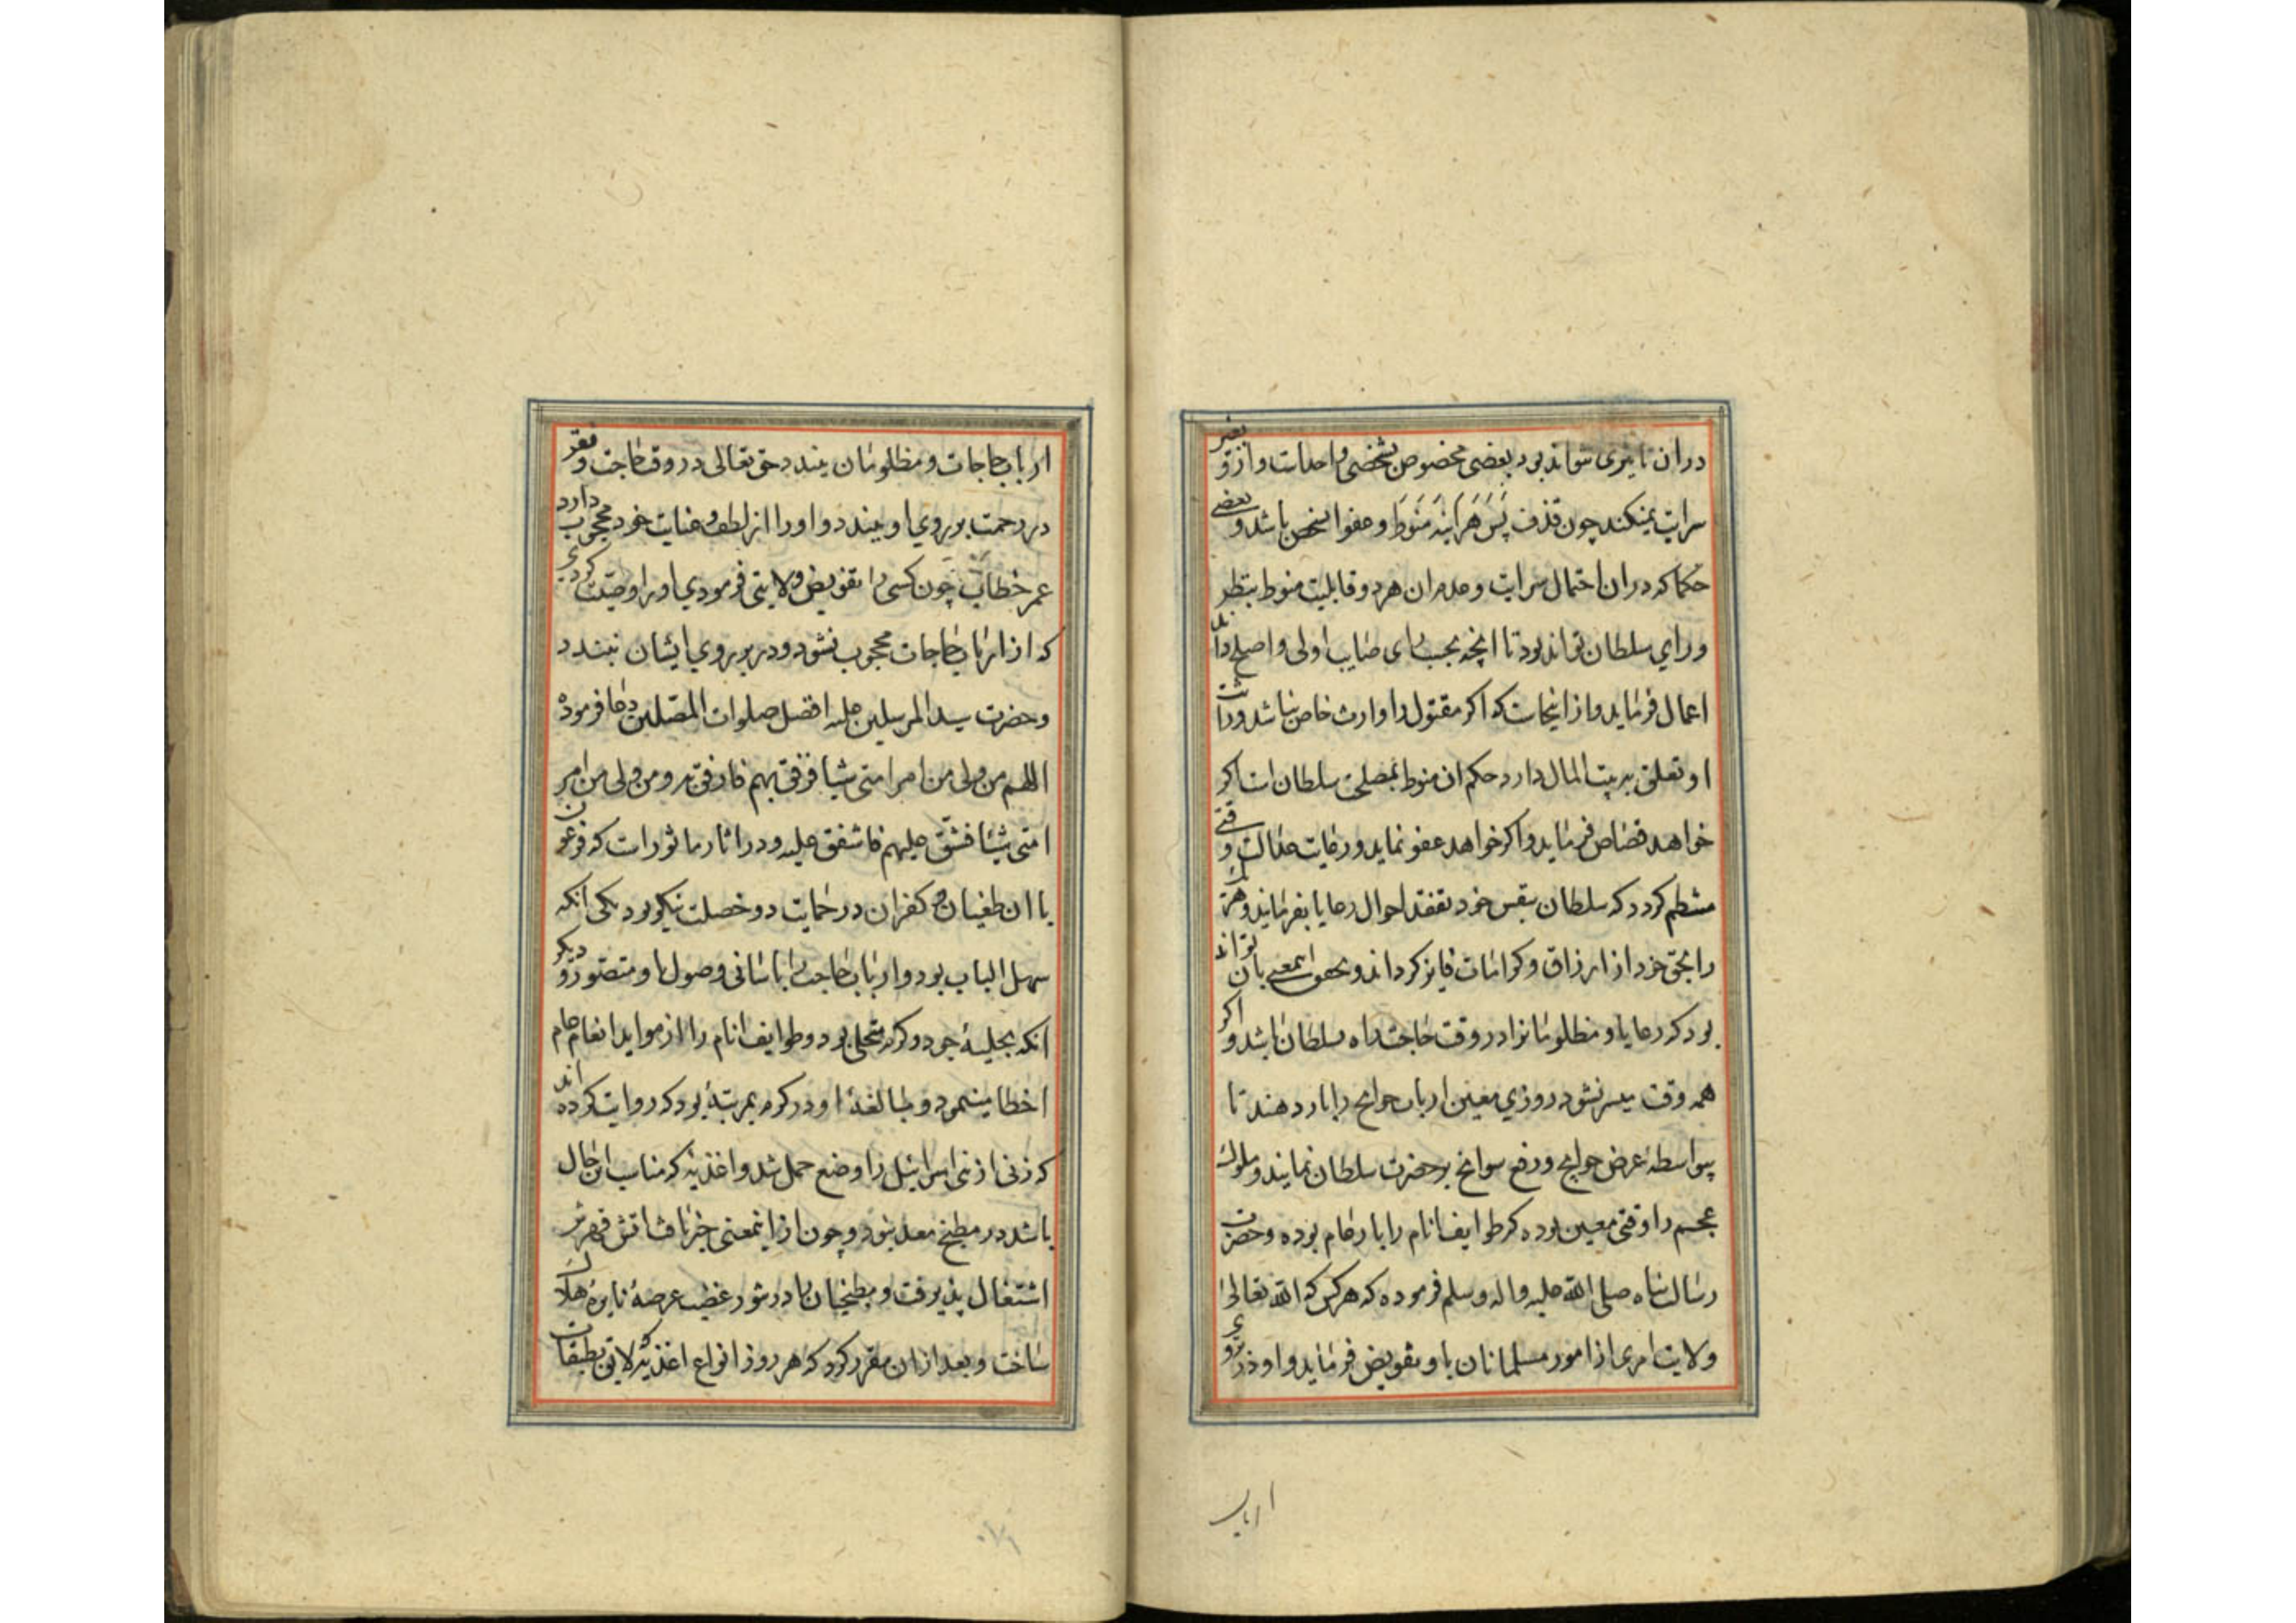 در ان تاثیری نتواند بود بعضی مخصوص بشخصی واحدست و از و بغیر
سرایت نمیکند چون قذف پس هراینه منوط و عفو اشخص باشد و بعضی
حکما که در ان احتمال سرایت و عدم ان هر دو قابلیت منوط بنظر
و رای سلطان تواند بود تا انچه بحسب رای صایب اولی و اصلح داند
اعمال فرماید و از انجاست که اکر مقتول را وارث خاص نباشد و وراثت
او تعلق ببیت المال دارد حکم ان منوط بمصلحت سلطان است اکر
خواهد قصاص فرماید و اکر خواهد عفو نماید و رعایت عدالت وقتی
منتظم کردد که سلطان بنفس خود تفقد احوال رعایا بفرماید و هر یک
را بحق خود از ارزاق و کرامات فایز کرداند و تحقق اینمعنی بان تواند
بود که رعایا و مظلومانرا در وقت حاجت راه بسلطان باشد و اکر
همه وقت میسر نشود در روزی معین ارباب حوایج را بار دهند تا
بیواسطه عرض حوایج و رفع سوانح بر حضرت سلطان نمایند و ملوک
عجم را وقتی معین بوده که طوایف انام را بار عام بوده و حضرت
رسالت پناه صلی الله علیه و اله و سلم فرموده که هر کس که الله تعالی
ولایت امری از امور مسلمانان باو تفویض فرماید و او در بر روی
ارباب
ارباب حاجات و مظلومان ببندد حق تعالی در وقت حاجت و فقر
در رحمت بر روی او ببندد و او را از لطف و عنایت خود محجوب دارد
عمر خطاب چون کسی را تفویض ولایتی فرمودی او را وصیت کردی
که از ارباب حاجات محجوب نشود و در بر روی ایشان نبندد
و حضرت سید المرسلین علیه افضل صلوات المصلین دعا فرموده
اللهم من ولی من امر امتی شیا فرفق بهم فارفق به و من ولی من امر
امتی شیئا فشق علیهم فاشقق علیه و در اثار ماثورات که فرعون
با ان طغیان و کفران در حمایت دو خصلت نیکو بود یکی انکه
سهل الباب بود و ارباب حاجت را باسانی وصول باو متصور و دیکر
انکه بحلیهٔ جود و کرم متحلی بود و طوایف انام را از مواید انعام عام
اخطا مینمود و مبالغهٔ او در کرم بمرتبهٔ بود که روایت کرده اند
که زنی از بنی اسرائیل را وضع حمل شد و اغذیهٔ که مناسب ان حال
باشد در مطبخ معد نبود و چون از اینمعنی خبر یافت اتش قهرش
اشتعال پذیرفت و مطبخیان را در شور غضب عرصهٔ نایرهٔ هلاک
ساخت و بعد ازان مقرر کرد که هر روز انواع اغذیهٔ لایق بطبقات